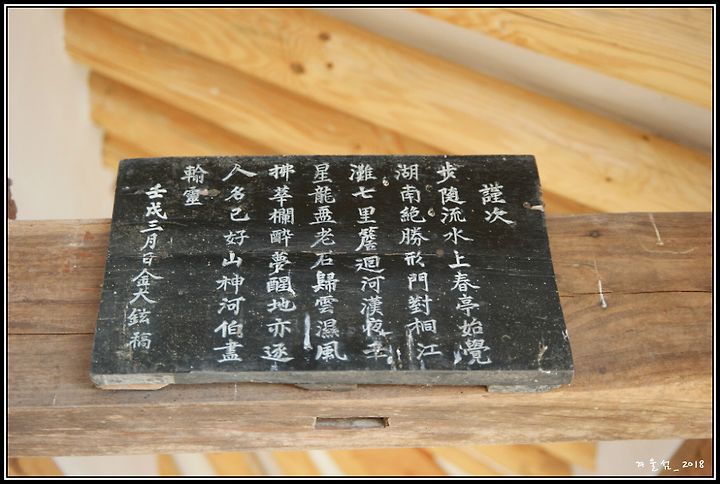 謹次
步隨流水上春亭始覺
湖南絶勝形門對桐江
灘七里簷迴河漢夜
星龍盤老石歸雲濕風
拂華欄醉夢醒地亦逐
人名已好山神河伯盡
輸靈
壬戌三月日金大鉉稿
겨울섬_2018